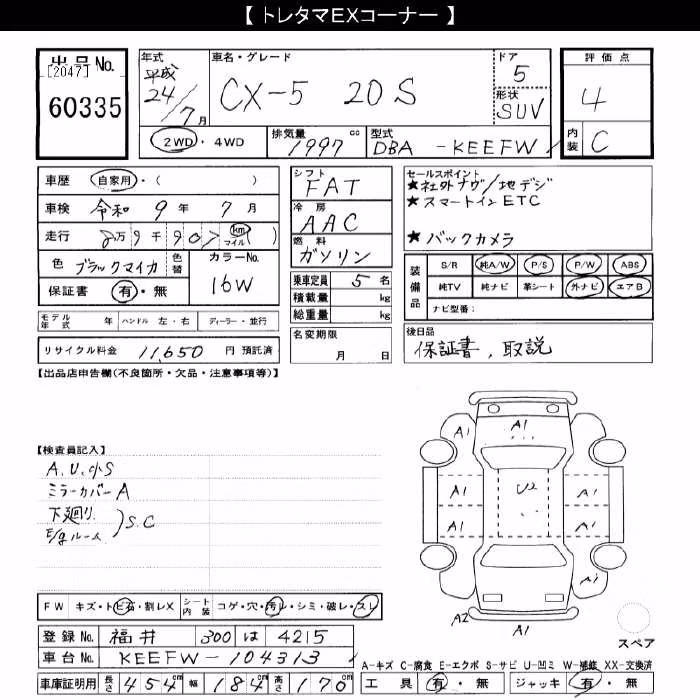 【 トレタマEXコーナー 】
出品No.
[2047]
60335
年式
平成
24/7月
車名・グレード
CX-5 20S
ドア
5
形状
SUV
評価点
4
内装
C
2WD・4WD
排気量
1997 cc
型式
DBA -KEEFW
車歴 自家用・( )
車検 令和 9年 7月
走行 8万9千90 km マイル
色 ブラックマイカ 色替
カラーNo.
16W
保証書 有・無
シフト
FAT
冷房
AAC
燃料
ガソリン
乗車定員 5名
積載量 kg
総重量 kg
セールスポイント
★社外ナヴ/地デジ
★スマートイン ETC
★バックカメラ
装備品
S/R 純A/W P/S P/W ABS
純TV 純ナビ 革シート 外ナビ エアB
ナビ型番:
モデル年式 年 ハンドル 左・右 ディーラー・並行
リサイクル料金 11,650 円 預託済
名変期限
月 日
後日品
保証書、取説
【出品店申告欄(不良箇所・欠品・注意事項等)】
【検査員記入】
A.U.小S
ミラーカバーA
下廻り
E/gルーム
S.C
A1 A1 A1
A1 U2 A1
A1 A1
A1
A2 A1
スペア
FW キズ・トビ石・割レX シート内装 コゲ・穴・汚レ・シミ・破レ・スレ
登録No. 福井 300 は 4215
車台No. KEEFW-104313
車庫証明用 長さ 454cm 幅 184cm 高さ 170cm
A-キズ C-腐食 E-エクボ S-サビ U-凹ミ W-補修 XX-交換済
工具 有・無 ジャッキ 有・無